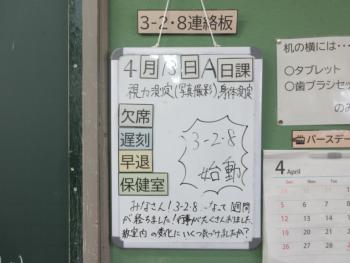 3-2・8連絡板
4月13日A日課
視力測定(写真撮影)身体測定
欠席
遅刻
早退
保健室
3-2-8
始動
みなさん!3-2-8になって1週間
が経ちました!行事がたくさんありました。
教室内の変化にいくつ気づけましたか?
机の横には…
○タブレット
○歯ブラシセッ
のみ
バースデー
4 April